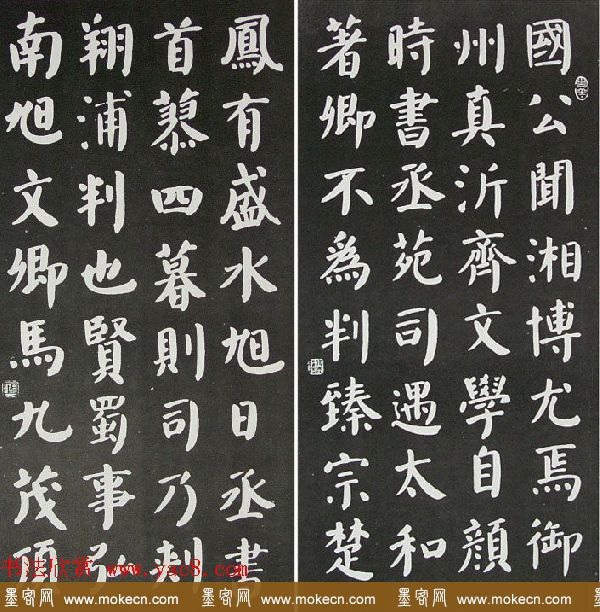 國公聞湘博尤焉御
州真沂齊文學自顏
時書丞苑司遇太和
著卿不爲判臻宗楚
鳳有盛水旭日丞書
首四暮則司乃刺
翔浦判也賢蜀事
南旭文卿馬九茂
书法欣赏 www.yac8.com
墨客网 www.mokecn.com 墨客网 www.mokecn.com 墨客网 www.mokecn.com